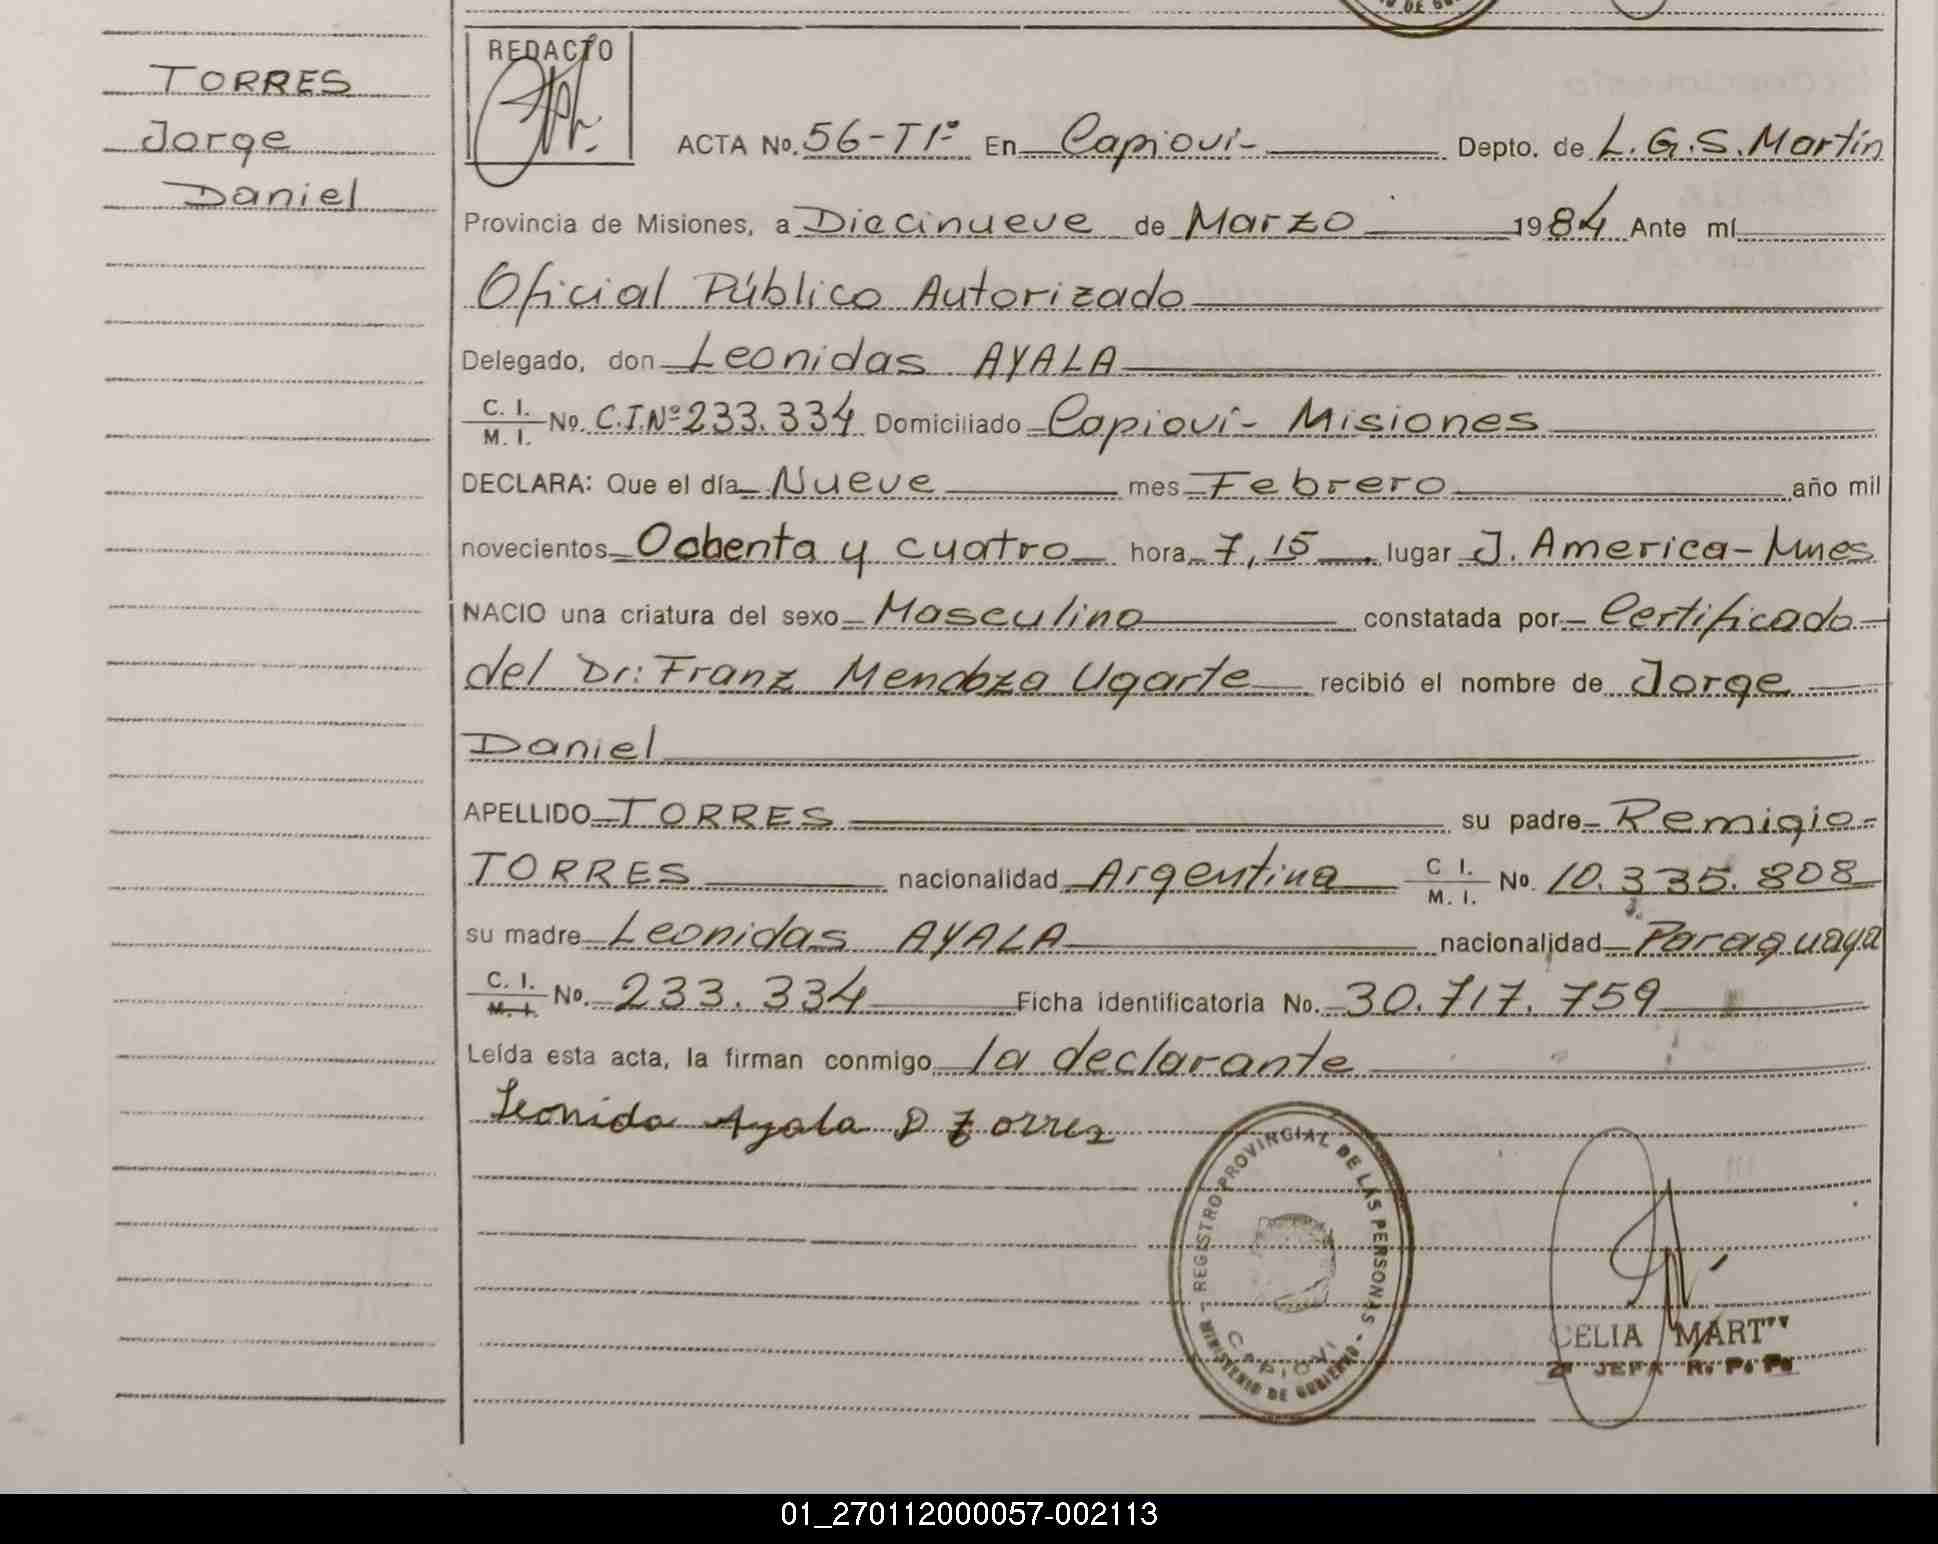 TORRES
Jorge
Daniel
REDACTO
ACTA No. 56-T1º En Capioví- Depto. de L.G.S. Martín
Provincia de Misiones, a Diecinueve de Marzo 1984 Ante mí
Oficial Público Autorizado
Delegado, don Leonidas AYALA
C. I.
M. I. No. C.I.Nº 233.334 Domiciliado Capioví- Misiones
DECLARA: Que el día Nueve mes Febrero año mil
novecientos Ochenta y cuatro hora 7,15 lugar J. America-Mnes
NACIO una criatura del sexo Masculino constatada por Certificado
del Dr: Franz Mendoza Ugarte recibió el nombre de Jorge
Daniel
APELLIDO TORRES su padre Remigio-
TORRES nacionalidad Argentina C I.
M. I. No. 10.335.808
su madre Leonidas AYALA nacionalidad Paraguaya
C. I.
M. I. No. 233.334 Ficha identificatoria No. 30.717.759
Leída esta acta, la firman conmigo la declarante
Leonida Ayala D Torres
REGISTRO PROVINCIAL DE LAS PERSONAS - MINISTERIO DE GOBIERNO -
CAPIOVI
CELIA MART
2ª JEFA R. P. P.
01_270112000057-002113